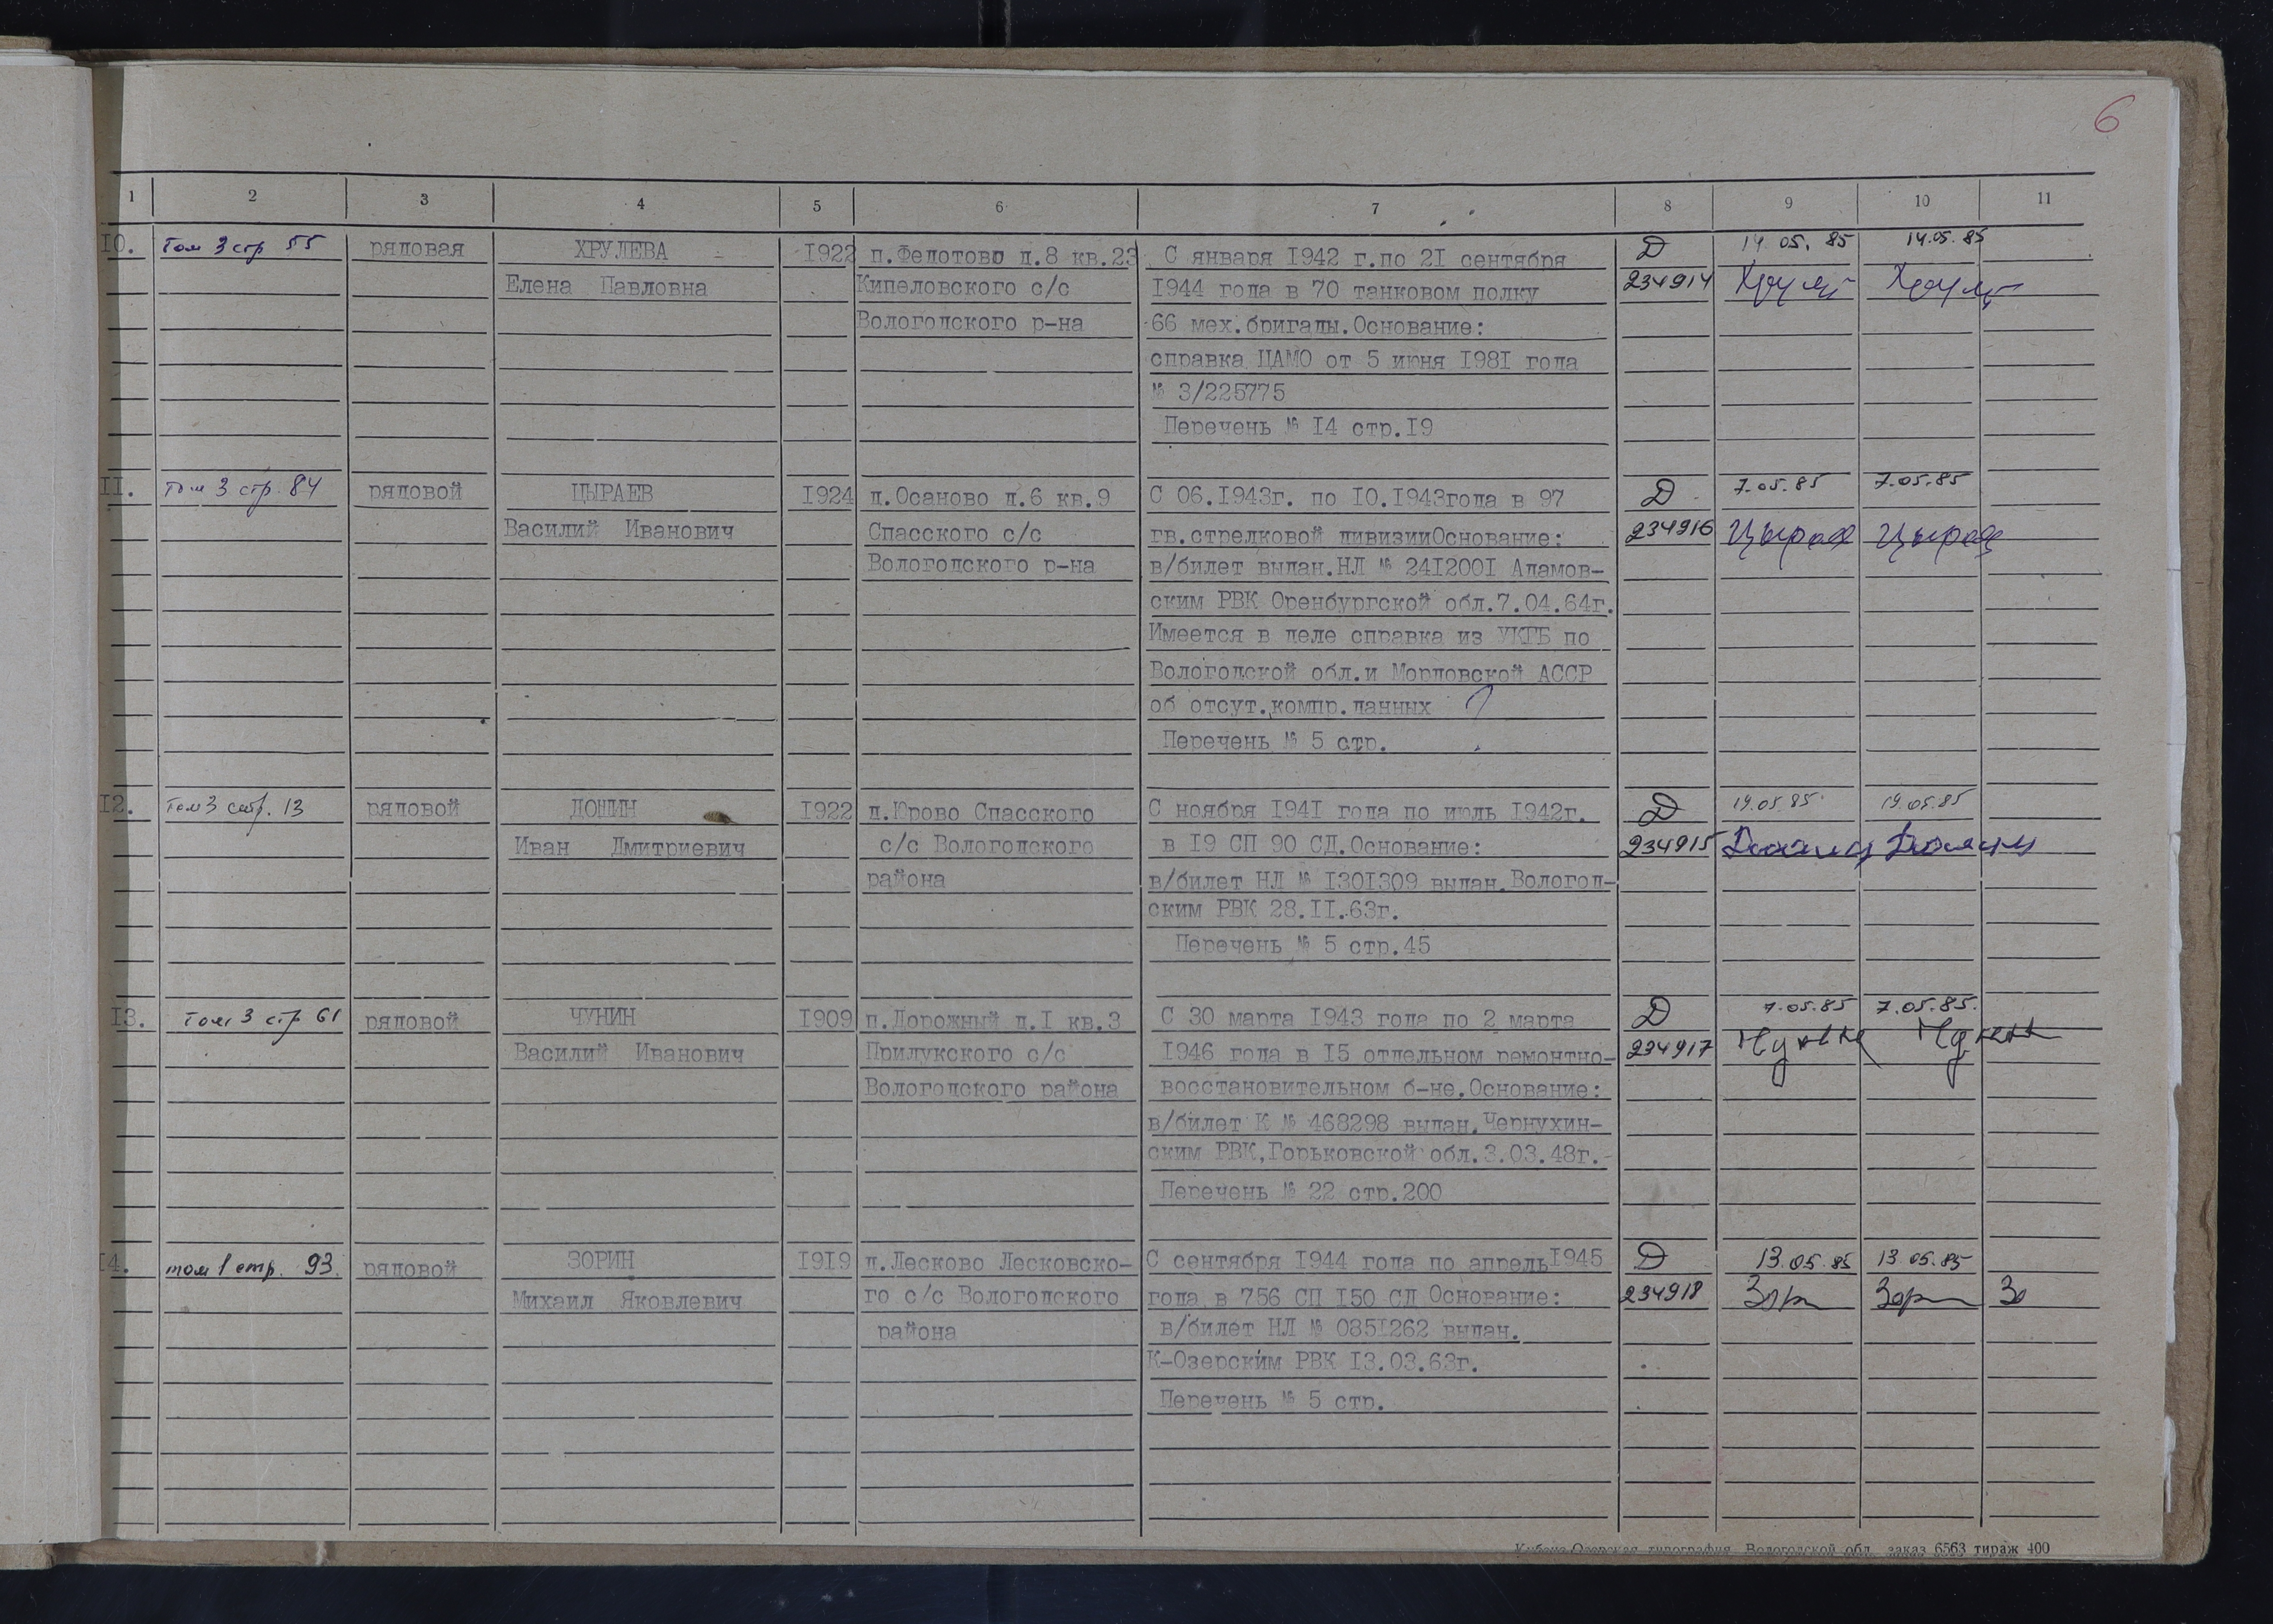 6
1 2 3 4 5 6 7 8 9 10 11
10. Том 3 стр 55 рядовая ХРУЛЕВА 1922 п.Федотово д.8 кв.23 С января 1942 г.по 21 сентября Д 14.05.85 14.05.85
Елена Павловна Кипеловского с/с 1944 года в 70 танковом полку 234914
Вологодского р-на 66 мех.бригады.Основание:
справка ЦАМО от 5 июня 1981 года
№ 3/225775
Перечень № 14 стр.19
11. Том 3 стр. 84 рядовой ЦЫРАЕВ 1924 д.Осаново д.6 кв.9 С 06.1943г. по 10.1943года в 97 Д 7.05.85 7.05.85
Василий Иванович Спасского с/с гв.стрелковой дивизииОснование: 234916 Цырае Цырае
Вологодского р-на в/билет выдан.НЛ № 2412001 Адамов-
ским РВК Оренбургской обл.7.04.64г.
Имеется в деле справка из УКГБ по
Вологодской обл.и Мордовской АССР
об отсут.компр.данных
Перечень № 5 стр.
12. Том 3 стр. 13 рядовой ДОНИН 1922 д.Юрово Спасского С ноября 1941 года по июль 1942г. Д 19.05.85 19.05.85
Иван Дмитриевич с/с Вологодского в 19 СП 90 СД.Основание: 234915
района в/билет НЛ № 1301309 выдан.Вологод-
ским РВК 28.11.63г.
Перечень № 5 стр.45
13. Том 3 стр 61 рядовой ЧУНИН 1909 п.Дорожный д.1 кв.3 С 30 марта 1943 года по 2 марта Д 7.05.85 7.05.85.
Василий Иванович Прилукского с/с 1946 года в 15 отдельном ремонтно- 234917
Вологодского района восстановительном б-не.Основание:
в/билет К № 468298 выдан.Чернухин-
ским РВК,Горьковской обл.3.03.48г.
Перечень № 22 стр.200
14. том 1 стр. 93. рядовой ЗОРИН 1919 д.Лесково Лесковско- С сентября 1944 года по апрель 1945 Д 13.05.85 13.05.85
Михаил Яковлевич го с/с Вологодского года в 756 СП 150 СД Основание: 234918 Зор Зор Зо
района в/билет НЛ № 0851262 выдан.
К-Озерским РВК 13.03.63г.
Перечень № 5 стр.
Кубено-Озерская типография Вологодской обл. заказ 6563 тираж 400